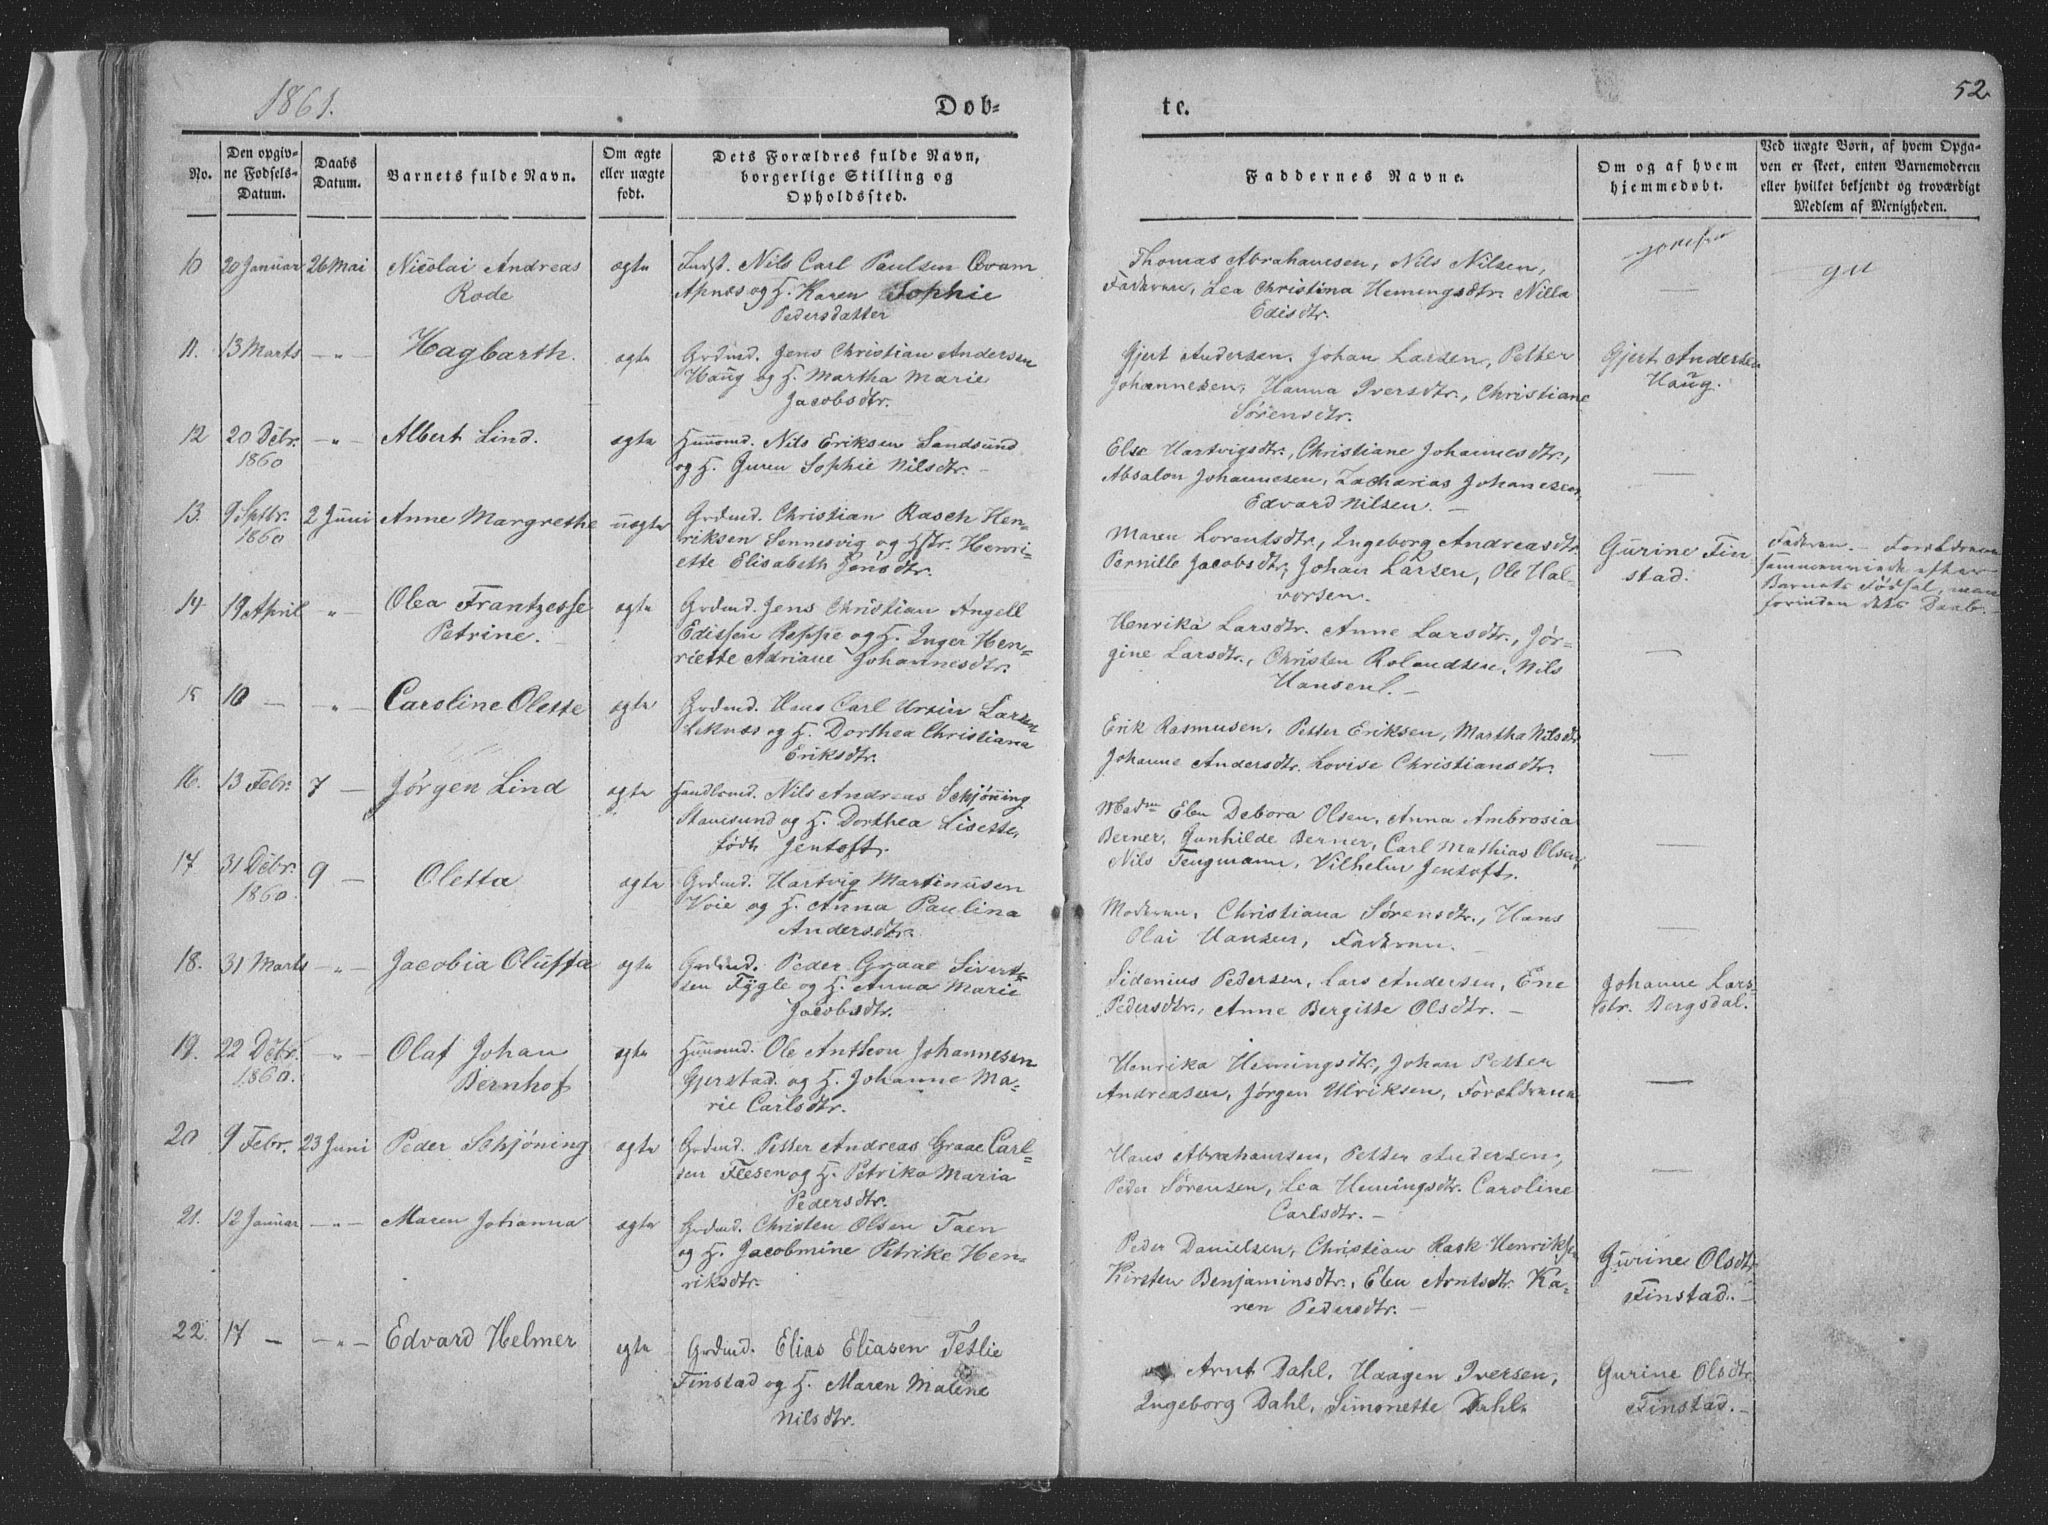 1861.
Døb-
te.
52.
No.
Den opgiv-
ne Fødsels-
Datum.
Daabs
Datum.
Barnets fulde Navn.
Om ægte
eller uægte
født.
Dets Forældres fulde Navn,
borgerlige Stilling og
Opholdssted.
Faddernes Navne.
Om og af hvem
hjemmedøbt.
Ved uægte Børn, af hvem Opga-
ven er skeet, enten Barnemoderen
eller hvilket bekjendt og troværdigt
Medlem af Menigheden.
10 20 Januar 26 Mai Nicolai Andreas ægte Indst. Nils Carl Paulsen
Rode Apnæs og H. Karen Sophie
Pedersdatter
Thomas Abrahamsen, Nils Nilsen,
Faderen, Lea Christina Hemingsdtr. Nilla
Edisdtr.
—
11. 13 Marts —„— Hagbarth. ægte Grdmd. Jens Christian Andersen
Haug og H. Martha Marie
Jacobsdtr.
Gjert Andersen, Johan Larsen, Petter
Johannesen, Hanna Iversdtr., Christiane
Sørensdtr.
Gjert Andersen
Haug.
12 20 Debr. —„— Albert Lind. ægte Huusmd. Nils Eriksen Sandsund
1860 og H. Guren Sophie Nilsdtr. —
Else Hartvigsdtr., Christiane Johannesdtr.,
Absalon Johannesen, Zacharias Johanesen
Edvard Nilsen. —
—
13. 9 Septbr. 2 Juni Anne Margrethe uægte Grdmd. Christian Rasch Hen-
1860 riksen Sennesvig og Henri-
ette Elisabeth Jensdtr.
Maren Lorentsdtr., Ingeborg Andreasdtr.
Pernille Jacobsdtr, Johan Larsen, Ole Hal-
vorsen.
Gurine Fin
stad.
Faderen. — Forældrene
sammenviede efter
Barnets Fødsel, men
forinden dets Daab. —
14. 19 April „ — Olea Frantzesse ægte Grdmd. Jens Christian Angell
Petrine. Edissen Reppe og H. Inger Hen-
riette Adriane Johannesdtr.
Henrika Larsdtr. Anne Larsdtr., Jør-
gine Larsdtr., Christen Rolandsen, Nils
Hansen. —
—
15 10 — —„— Caroline Olette ægte Grdmd. Hans Carl Ursin Larsen
Leknæs og H. Dorthea Christiana
Eriksdtr.
Erik Rasmusen, Petter Eriksen, Martha Nilsdtr
Johanne Andersdtr. Lovise Christiansdtr.
—
16. 13 Febr. 7 — Jørgen Lind ægte Handlsmd. Nils Andreas Schjønning
Stamsund og H. Dorthea Lisette,
født Jentoft.
Madm Elen Debora Olsen, Anna Ambrosia
Berner, Gunhilde Berner, Carl Mathias Olsen,
Nils Tengmann, Vilhelm Jentoft.
—
17 31 Debr. 9 — Oletta ægte Grdmd. Hartvig Martinusen
1860 Voie og H. Anna Paulina
Andersdtr.
Moderen, Christiana Sørensdtr., Hans
Olai Hansen, Faderen.
—
18. 31 Marts —„— Jacobia Oluffa ægte Grdmd. Peder Graae Sivert-
sen Fygle og H. Anna Marie
Jacobsdtr.
Sidenius Pedersen, Lars Andersen, Ene
Pedersdtr., Anne Bergitte Olsdtr. —
Johanne Lars-
dtr. Bergsdal.
19. 22 Debr. —„— Olaf Johan ægte Huusmd. Ole Antheon Johannesen
1860. Bernhof Gjerstad og H. Johanne Ma-
rie Carlsdtr.
Henrika Hemingsdtr., Johan Petter
Andreasen, Jørgen Ulriksen, Forældrene
—
20 9 Febr. 23 Juni Peder Schjøning ægte Grdmd. Petter Andreas Graae Carl-
sen Flesen og H. Petrika Maria
Pedersdtr.
Hans Abrahamsen, Petter Andersen,
Peder Sørensen, Lea Hemingsdtr. Caroline
Carlsdtr. —
—
21. 12 Januar —„— Maren Johanna ægte Grdmd. Christen Olsen Taen
og H. Jacobmine Petrike Hen-
riksdtr.
Peder Danielsen, Christian Rask Henriksen
Kirsten Benjaminsdtr., Elen Arntsdtr. Ka-
ren Pedersdtr. —
Gurine Olsdtr
Finstad. —
22. 17 — —„— Edvard Helmer ægte Grdmd. Elias Eliasen Tetlie
Finstad og H. Maren Malene
Nilsdtr.
Arnt Dahl, Haagen Iversen,
Ingeborg Dahl, Simonette Dahl.
Gurine Olsdtr
Finstad. —